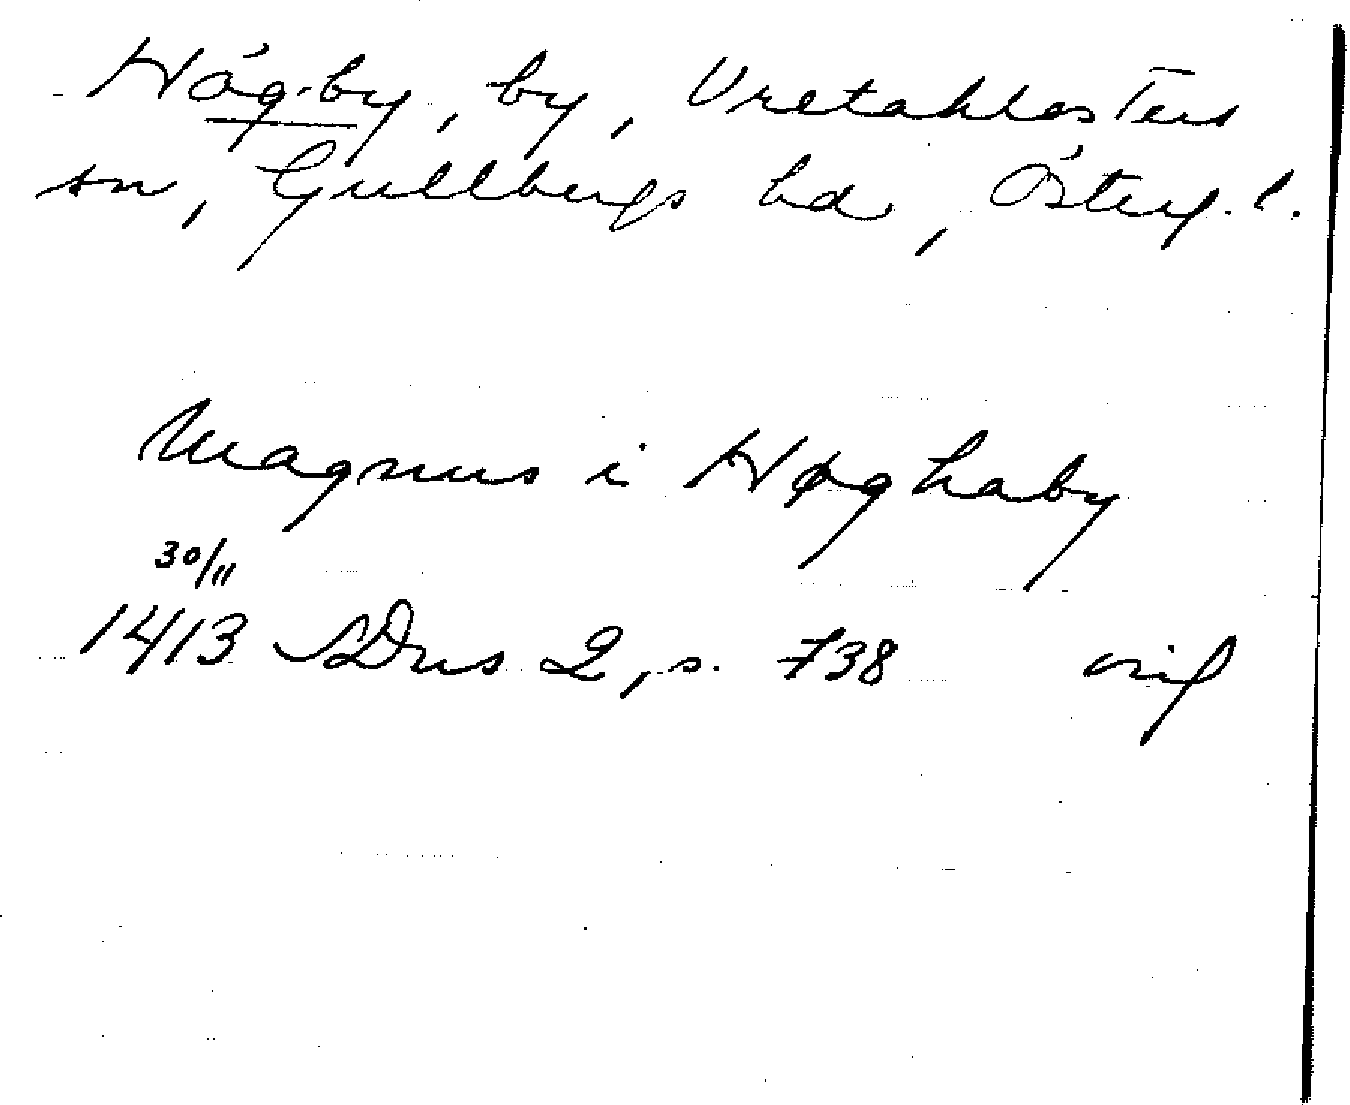 Högby, by, Vretaklosters
sn, Gullbergs hd, Österg. l.
Magnus i Høghaby
30/11
1413 SDns 2, s. 738 orig